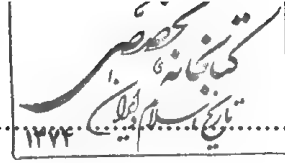 کتابخانه تخصصی
تاریخ اسلام و ایران
۱۲۷۴